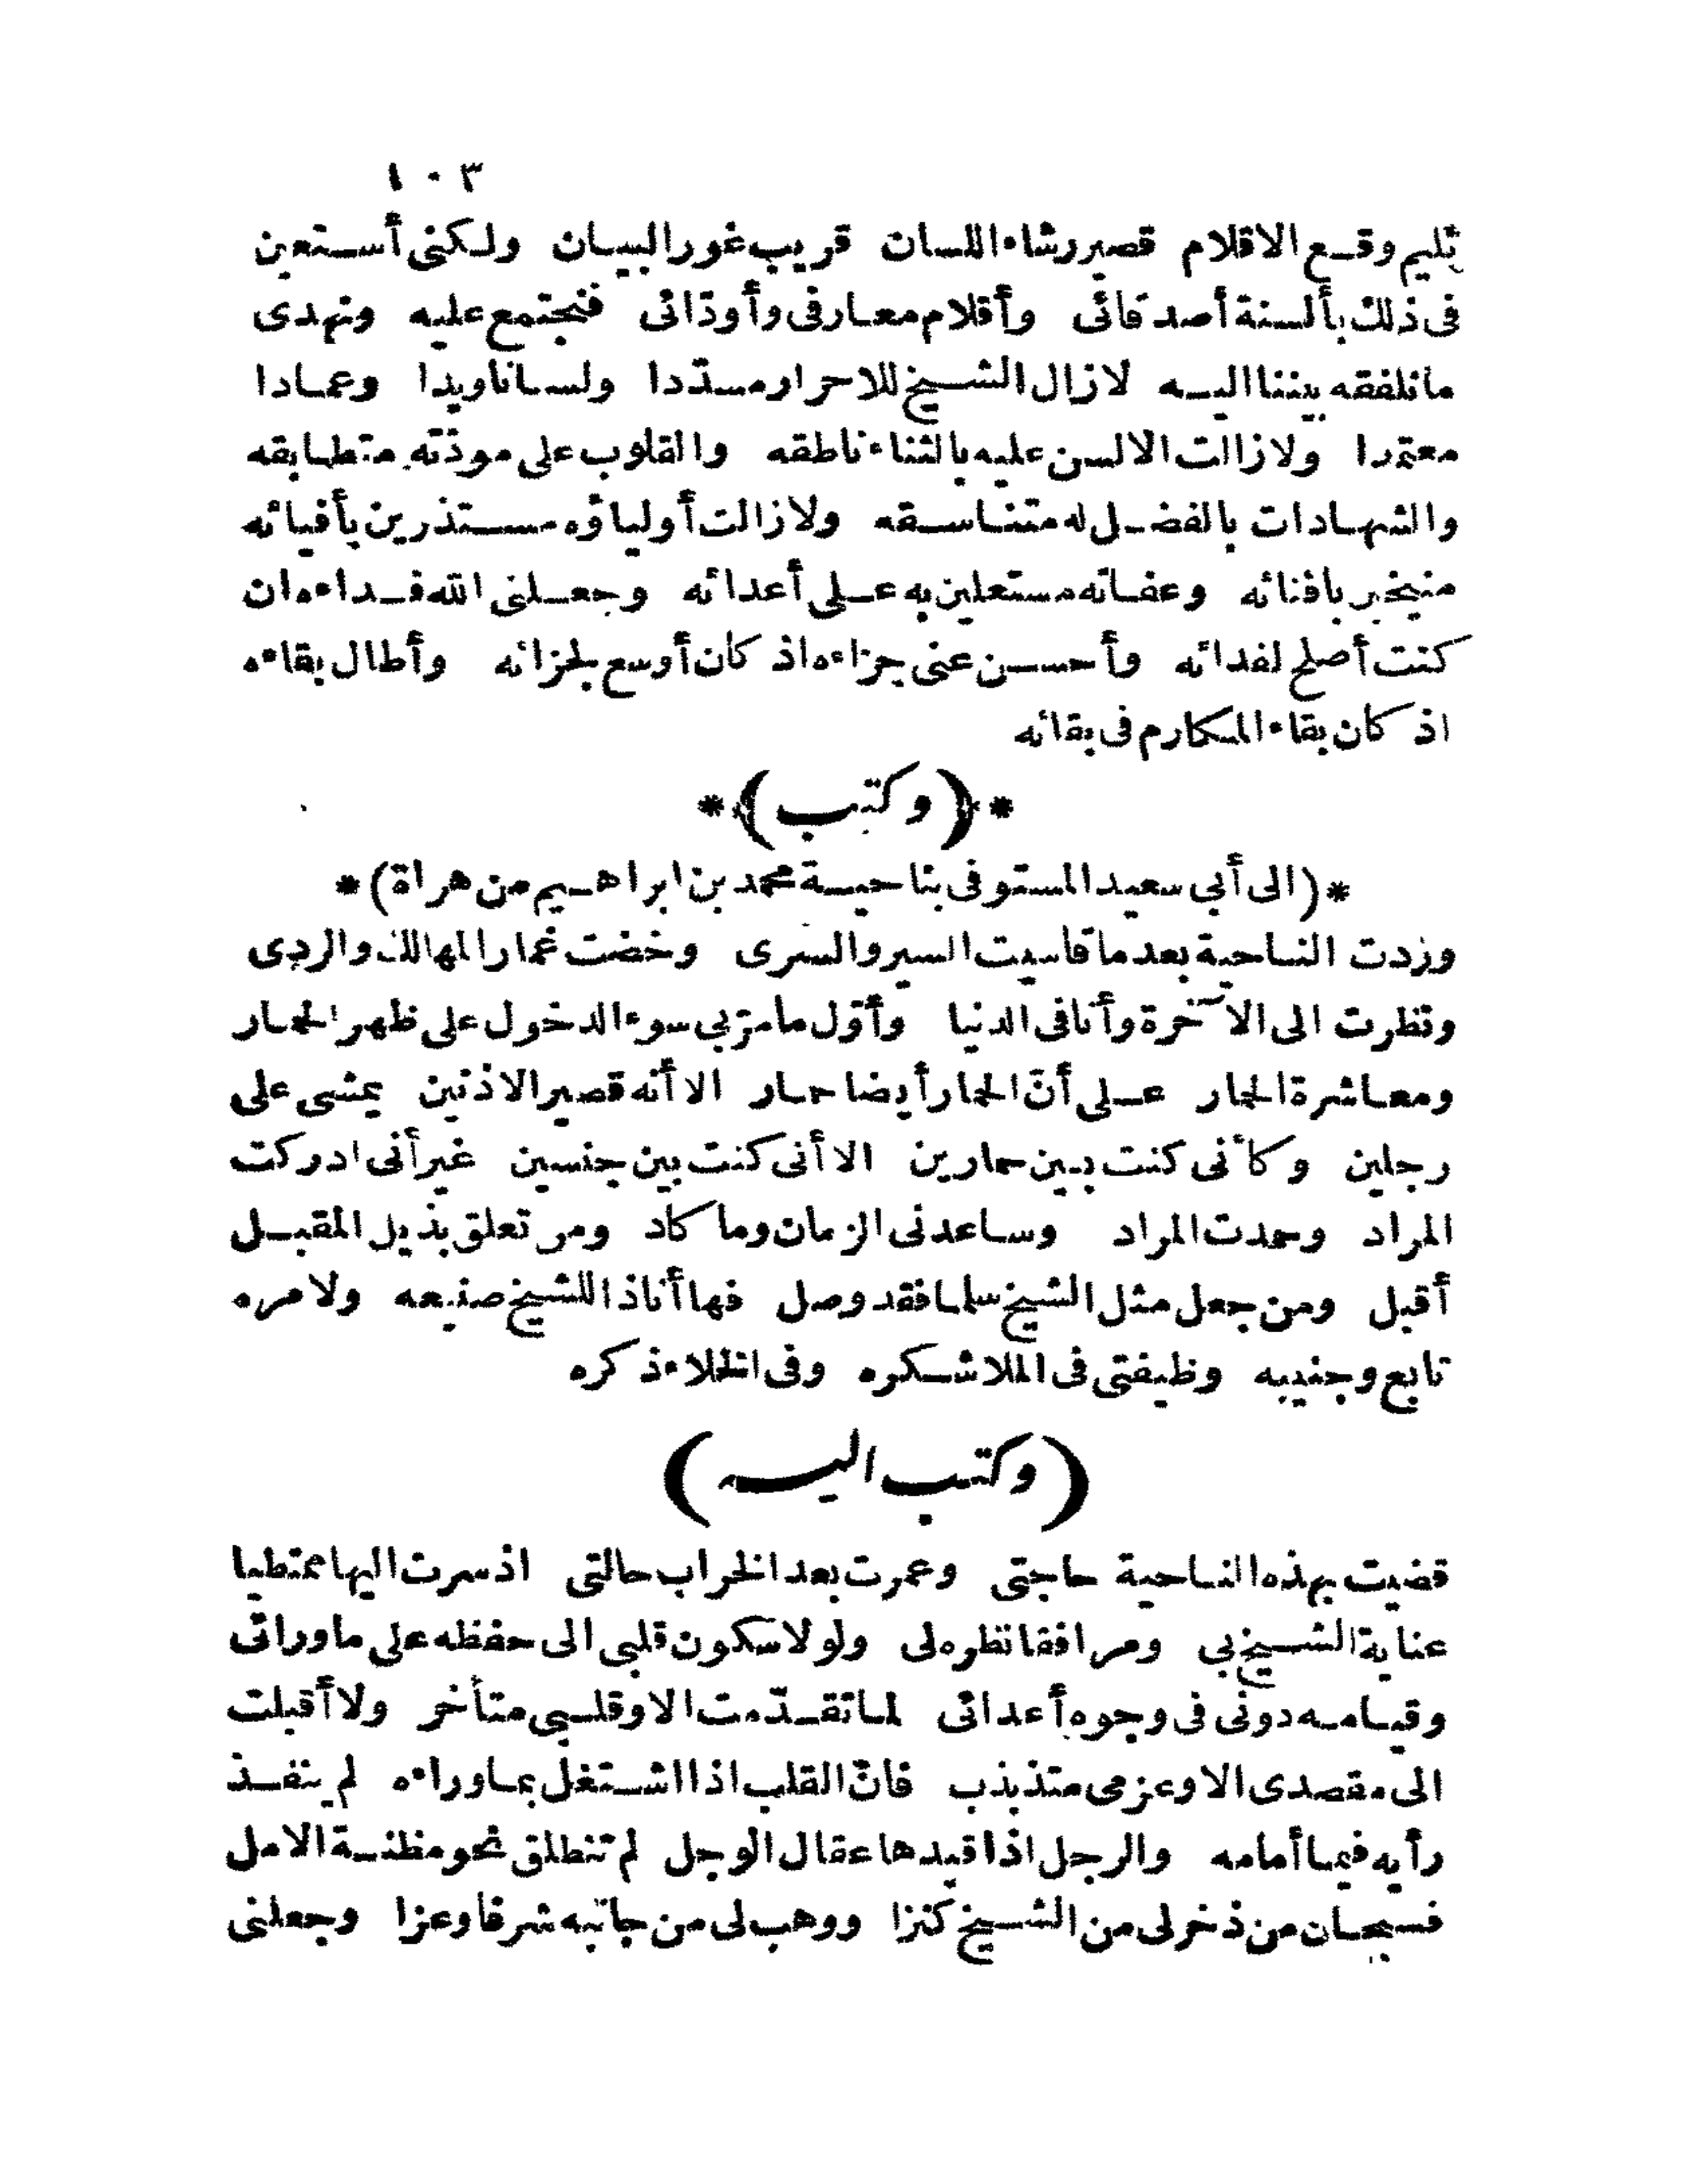 ١٠٣
ثليم وقع الاقلام قصير رشاء اللسان قريب غور البيان ولكنى أستعين
فى ذلك بألسنة أصدقائى وأقلام معارفى وأودّائى فنجتمع عليه ونهدى
ما نلفقه بيننا اليه لازال الشيخ للاحرار مسدّدا ولسانا ويدا وعمادا
معتمدا ولازالت الالسن عليه بالثناء ناطقه والقلوب على مودّته متطابقه
والشهادات بالفضل له متناسقه ولازالت أولياؤه مستذرين بأفيائه
منيخين بافنائه وعفاته مستعلين به على أعدائه وجعلنى الله فداءه ان
كنت أصلح لفدائه وأحسن عنى جزاءه اذ كان أوسع لجزائه وأطال بقاءه
اذ كان بقاء المكارم فى بقائه
*(وكتب)*
*(الى أبى سعيد المستوفى بناحية محمد بن ابراهيم من هراة)*
وزدت الناحية بعد ما قاسيت السير والسرى وخضت غمار المهالك والردى
ونظرت الى الآخرة وأنا فى الدنيا وأوّل ما مرّ بى سوء الدخول على ظهر الحمار
ومعاشرة الحمار على أنّ الحمار أيضا حمار الا أنه قصير الاذنين يمشى على
رجلين وكأنى كنت بين حمارين الا أنى كنت بين جنسين غير أنى ادركت
المراد وحمدت المراد وساعدنى الزمان وما كاد ومن تعلق بذيل المقبل
أقبل ومن جعل مثل الشيخ سلما فقد وصل فها أنا ذا للشيخ صنيعه ولامره
تابع وجنيبه وظيفتى فى الملا شكره وفى الخلاء ذكره
(وكتب اليه)
قضيت بهذه الناحية حاجتى وعمرت بعد الخراب حالتى اذ سرت اليها ممتطيا
عناية الشيخ بى ومرافقا نظره لى ولولا سكون قلبى الى حفظه على ما ورائى
وقيامه دونى فى وجوه أعدائى لما تقدّمت الا وقلبى متأخر ولا أقبلت
الى مقصدى الا وعزمى متذبذب فانّ القلب اذا اشتغل بما وراءه لم ينفذ
رأيه فيما أمامه والرجل اذا قيدها عقال الوجل لم تنطلق نحو مظنة الامل
فسبحان من ذخر لى من الشيخ كنزا ووهب لى من جانبه شرفا وعزا وجعلنى